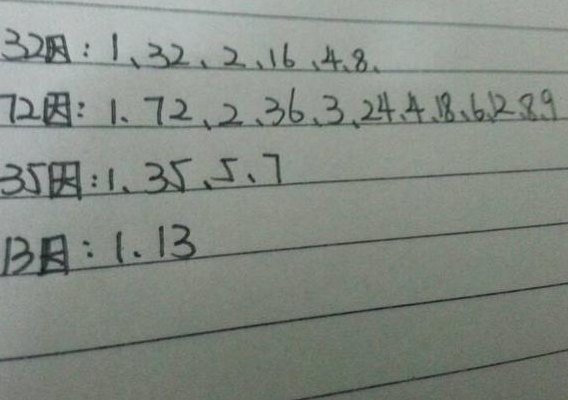 32因:1、32、2、16、4、8、
72因:1、72、2、36、3、24、4、18、6、12、8、9
35因:1、35、5、7
13因:1、13